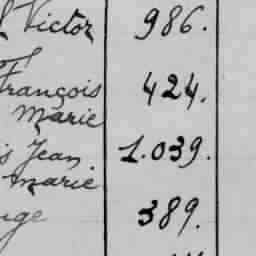 Victor 986.
François 424.
Marie
Jean 1.039.
Marie
389.